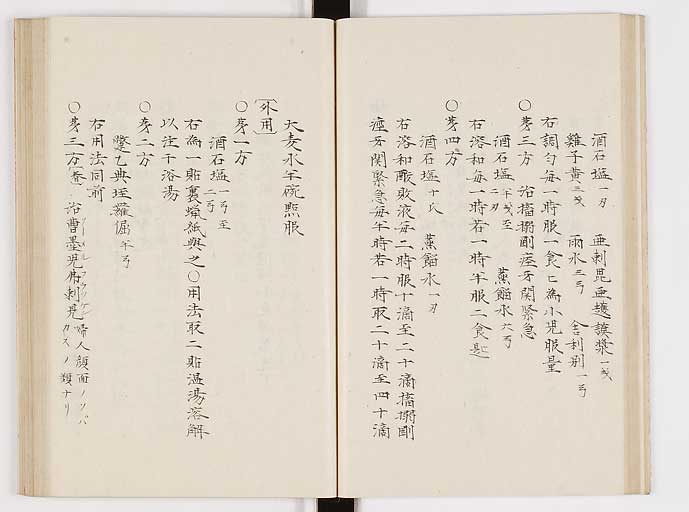 酒石塩一刃　亜剌毘亜護謨漿一戔
雞子黄三戔　雨水三弓　舎利別一弓
右調匀毎一時服一食匕為小児服量
○第三方　治搐搦剛痙牙関緊急
酒石塩半戔至二刃　薫餾水六弓
右溶和毎一時若一時半服二食匙
○第四方
酒石塩十氏　薫餾水一刃
右溶和酸敗液毎二時服十滴至二十滴搐搦剛
痙牙関緊急毎半時若一時取二十滴至四十滴
大麦水半碗點服
外用
○第一方
酒石塩一弓至二弓
右為一貼裏蠟紙與之○用法取二貼温湯溶解
以注于浴湯
○第二方
蹩乙典垤羅倔半弓
右用法同前
○第三方　治曹墨児弗剌児 婦人顔面ノソバカスノ類ナリ